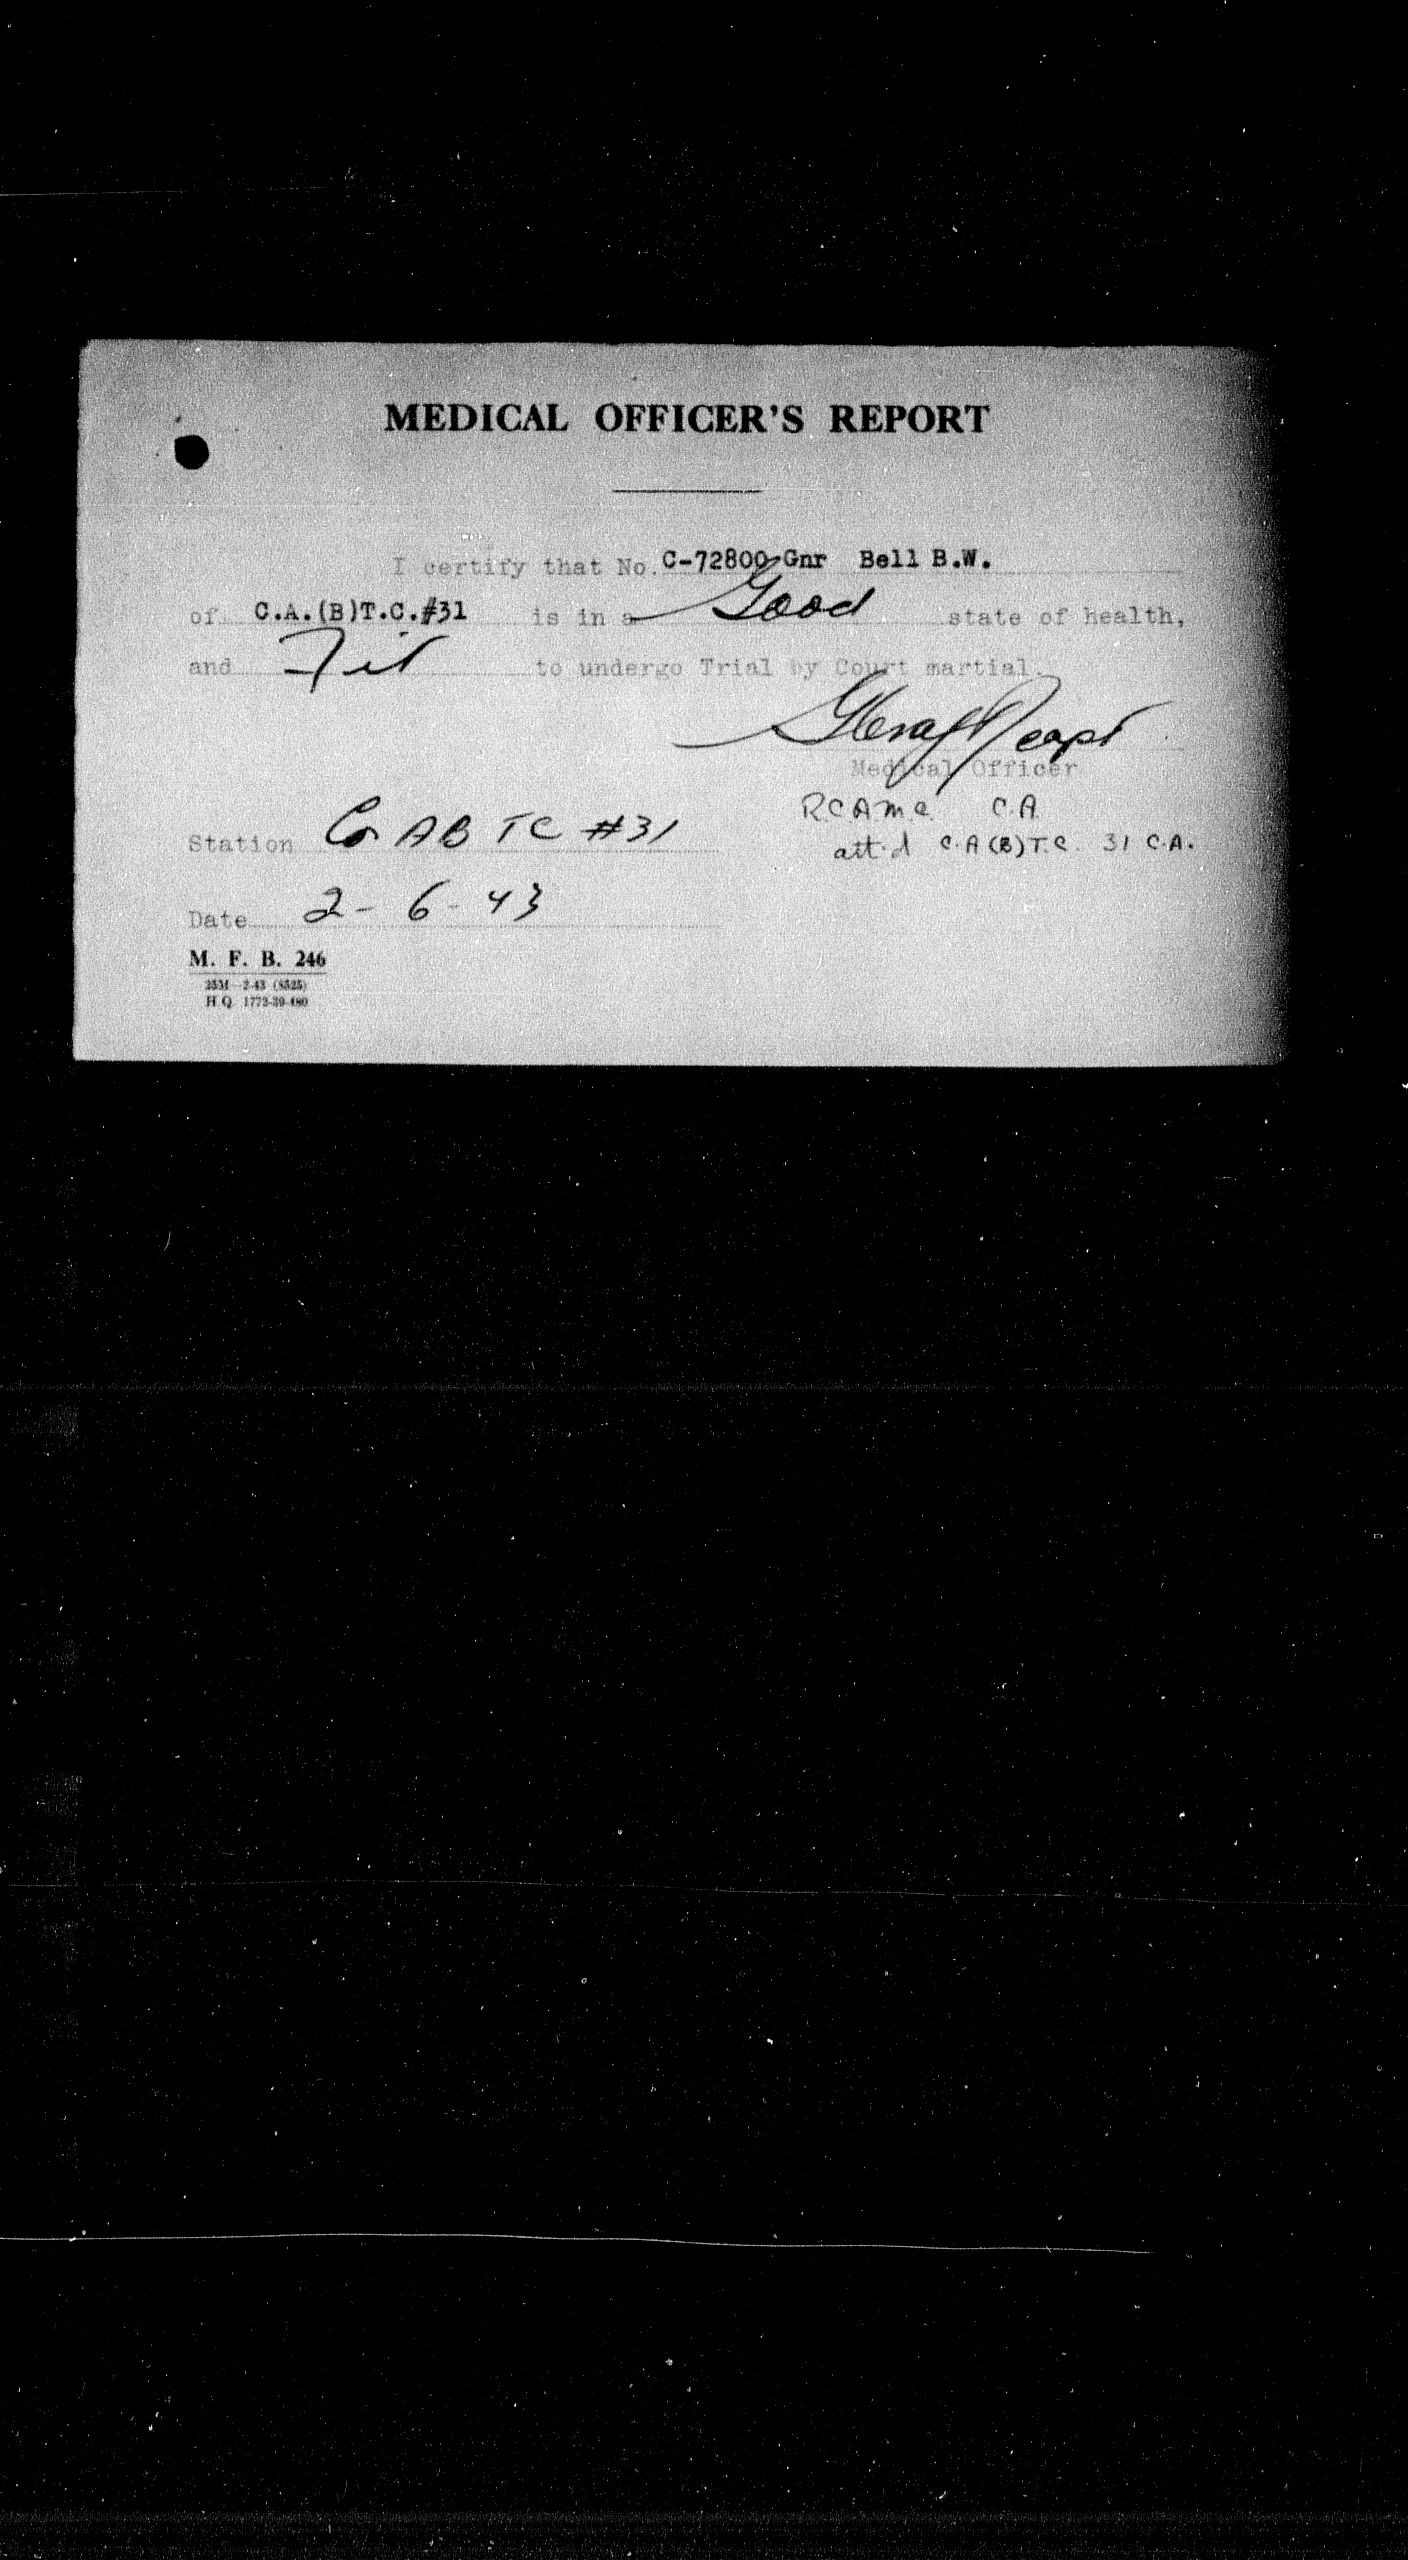 MEDICAL OFFICER'S REPORT
I certify that No. C-72800 Gnr Bell B.W.
of C.A.(B)T.C.#31 is in a Good state of health,
and Fit to undergo Trial by Court martial
Capt
Medical Officer
R.C.A.M.C. C.A.
att'd C.A.(B)T.C. 31 C.A.
Station AB TC #31
Date 2-6-43
M. F. B. 246
35M-2-43 (8525)
H.Q. 1772-39-480